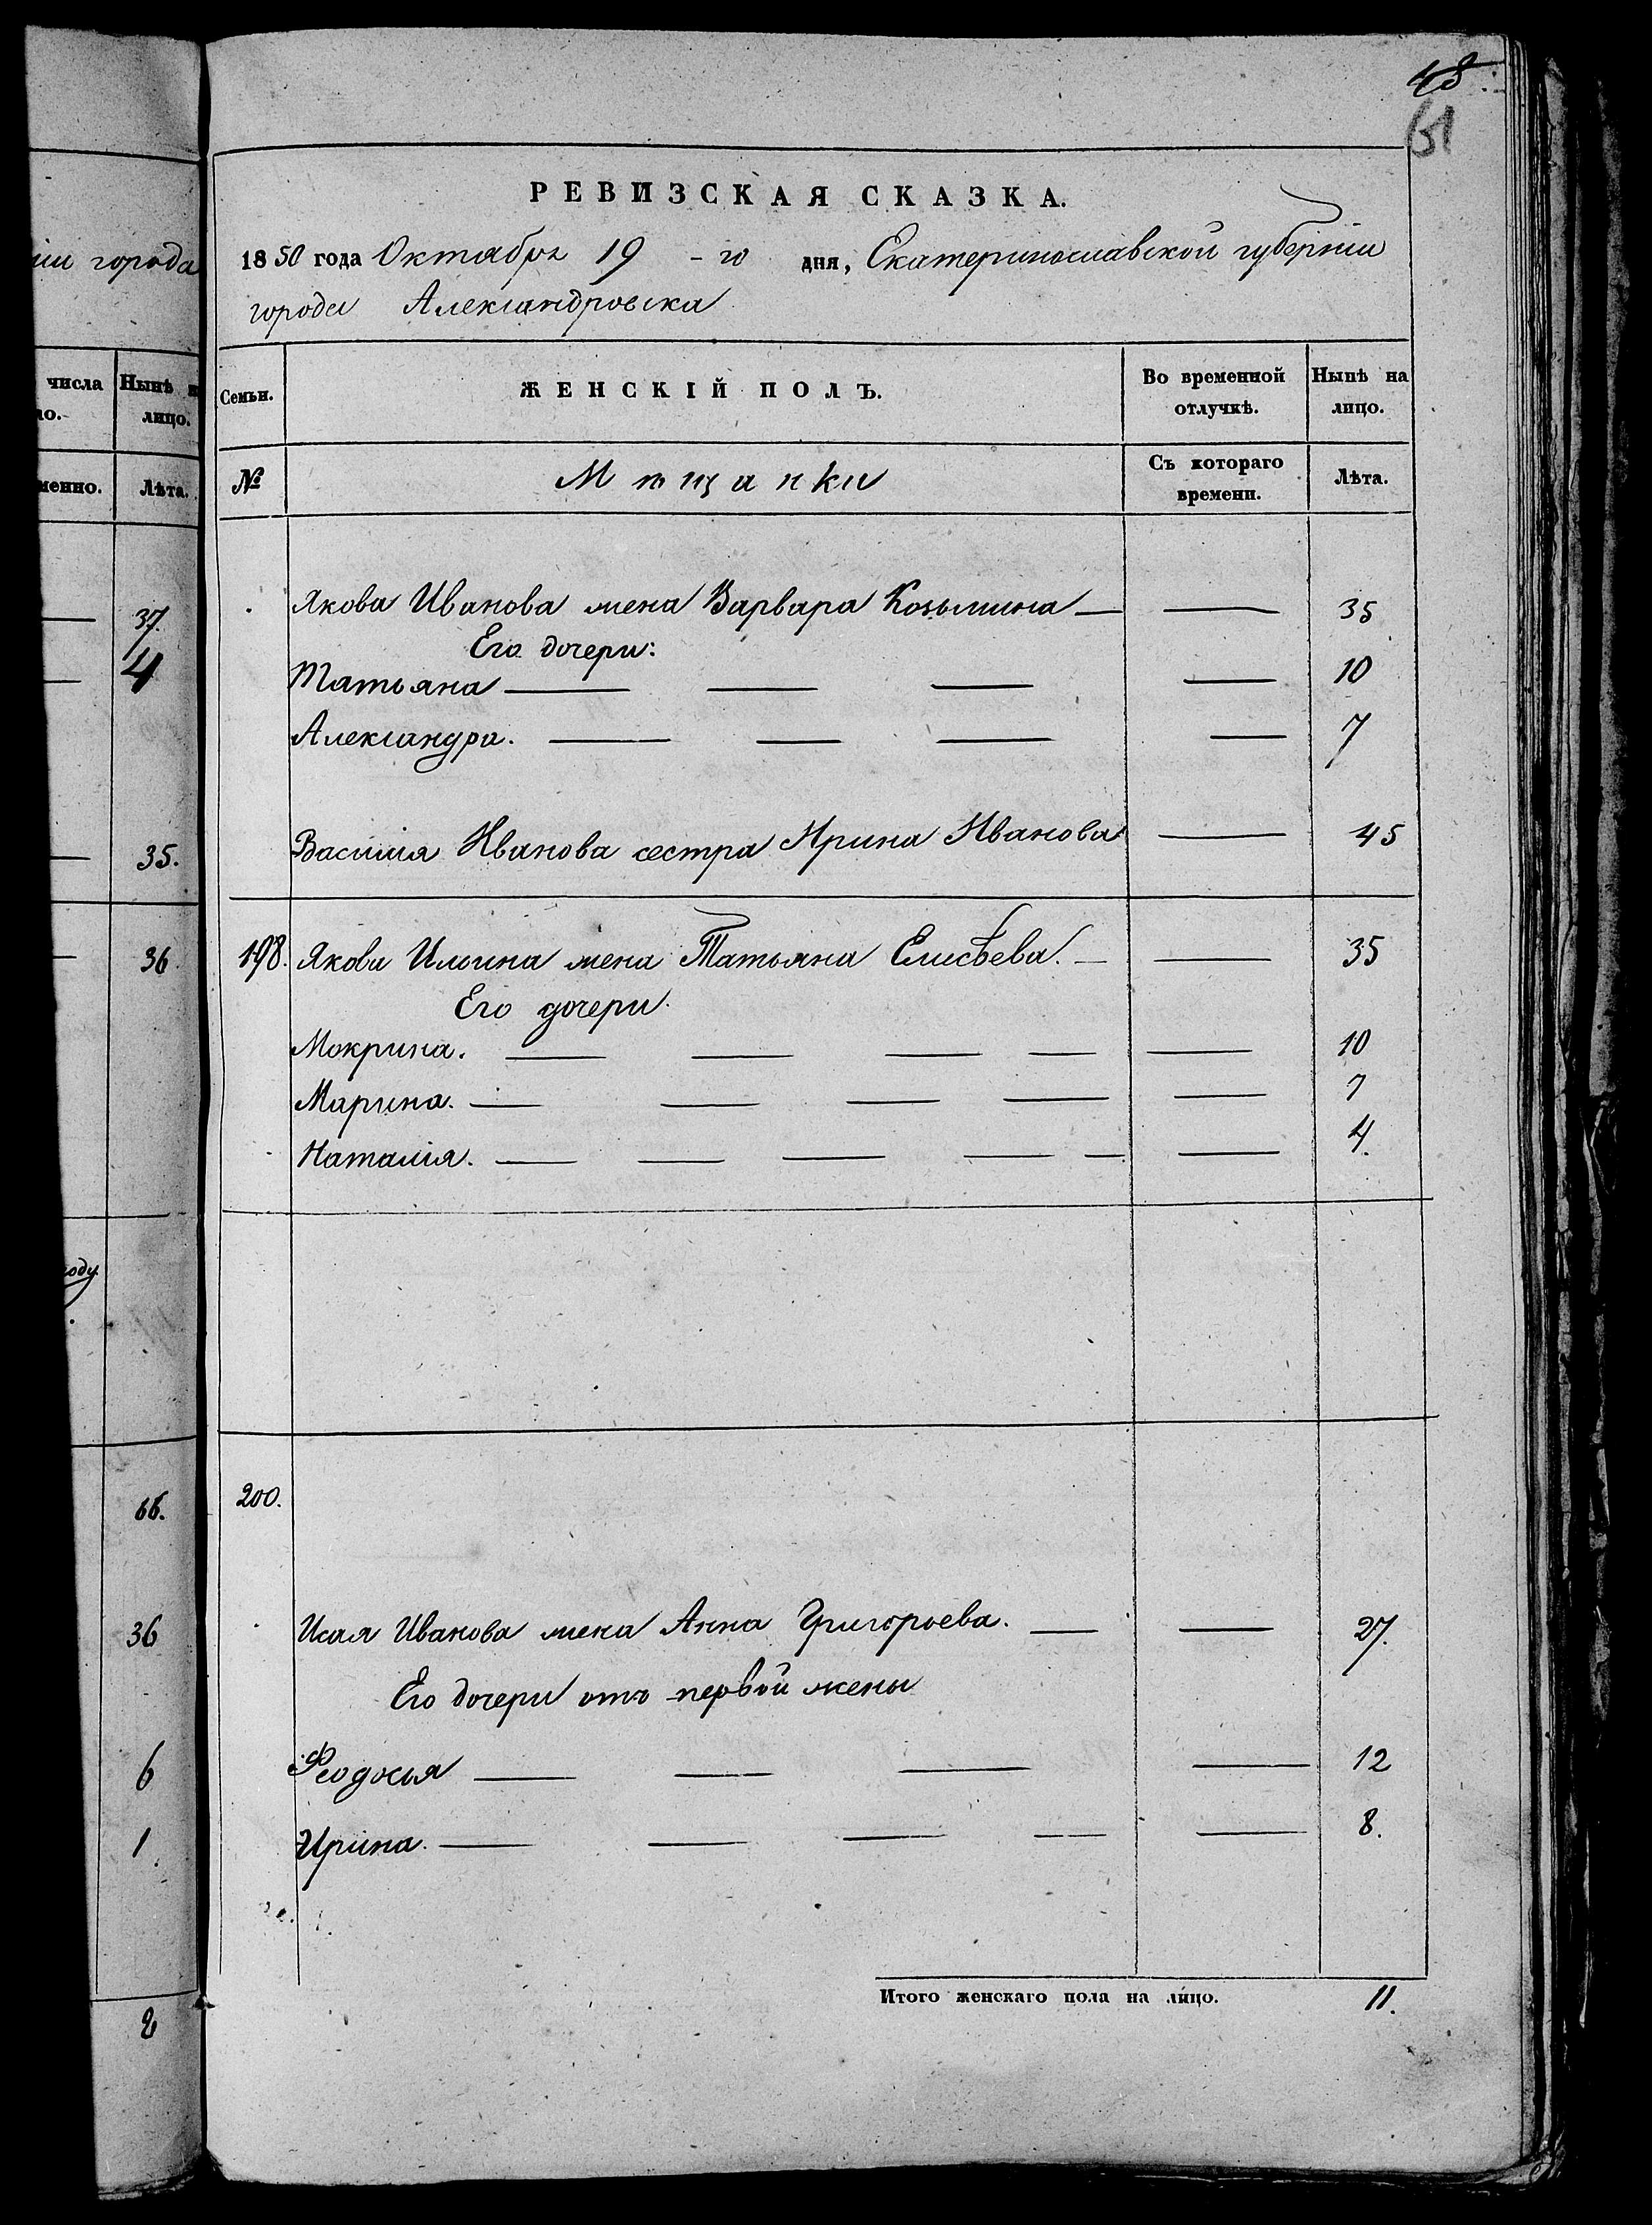 48.
51
РЕВИЗСКАЯ СКАЗКА.
1850 года Октября 19 - го дня, Екатеринославской губерніи
города Александровска
Семьи. ЖЕНСКІЙ ПОЛЪ. Во временной отлучкѣ. Нынѣ на лицо.
№ Мѣщанки Съ котораго времени. Лѣта.
Якова Иванова жена Варвара Козьмина — — 35
Его дочери:
Татьяна — — — — 10
Александра. — — — — 7
Василія Иванова сестра Ирина Иванова — 45
198. Якова Ильина жена Татьяна Елисѣева. — — 35
Его дочери.
Мокрина. — — — — — 10
Марина. — — — — — 7
Наталія. — — — — — — 4.
200.
Исая Иванова жена Анна Григорьева. — — 27.
Его дочери отъ первой жены
Феодосья — — — — 12
Ирина. — — — — — 8.
Итого женскаго пола на лицо. 11.
города
числа Нынѣ
лицо.
Лѣта.
37.
4
35.
36
66.
36
6
1
2